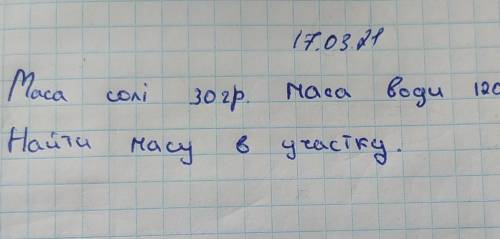 17.03.21
Маса солі 30гр. Маса води 120
Найти масу в участку.